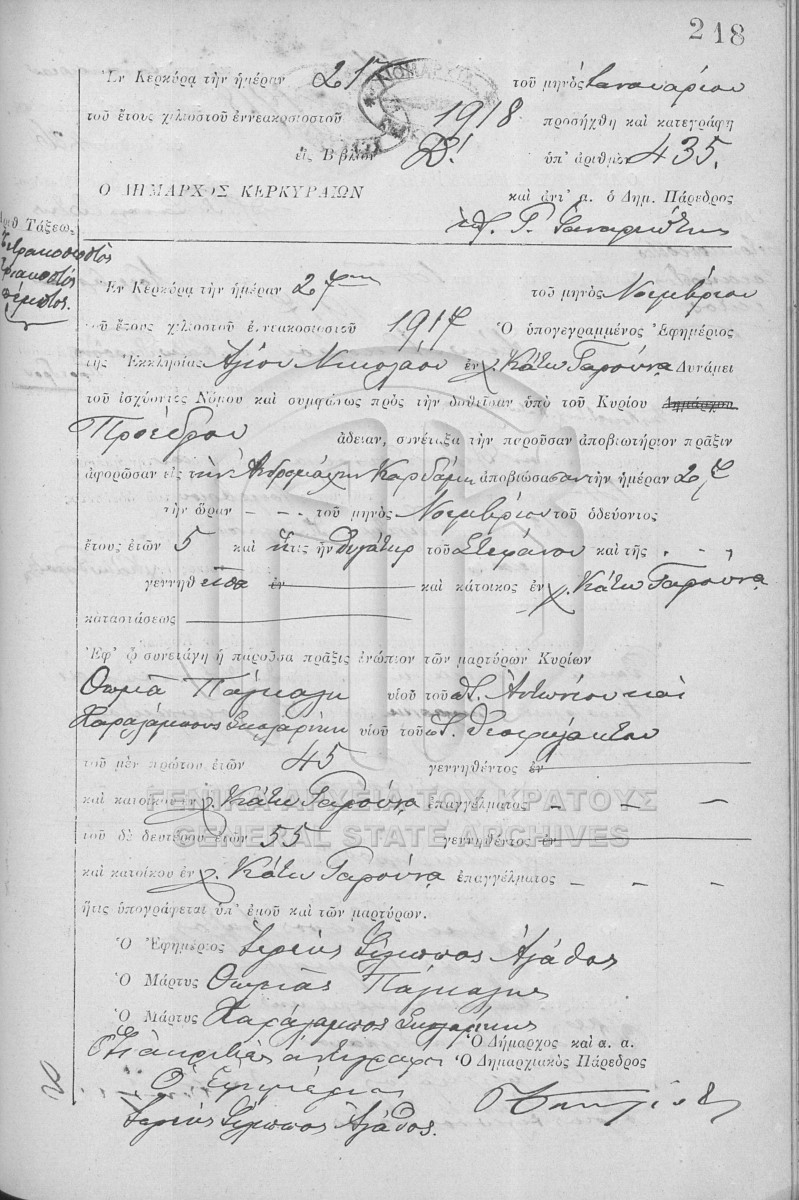 218
Ἐν Κερκύρᾳ τὴν ἡμέραν 27 τοῦ μηνὸς Ἰανουαρίου
τοῦ ἔτους χιλιοστοῦ ἐννεακοσιοστοῦ 1918 προσήχθη καὶ κατεγράφη
εἰς Βιβλίον Δ! ὑπ' ἀριθμὸν 435.
Ο ΔΗΜΑΡΧΟΣ ΚΕΡΚΥΡΑΙΩΝ καὶ ἀντ' α. ὁ Δημ. Πάρεδρος
Ἀριθ Τάξεως
Τετρακοσιοστὸς
τριακοστὸς
πέμπτος.
Ἐν Κερκύρᾳ τὴν ἡμέραν 27 τοῦ μηνὸς Νοεμβρίου
τοῦ ἔτους χιλιοστοῦ ἐννεακοσιοστοῦ 1917 Ὁ ὑπογεγραμμένος Ἐφημέριος
τῆς Ἐκκλησίας Ἁγίου Νικολάου ἐν χ. Κάτω Γαρούνᾳ Δυνάμει
τοῦ ἰσχύοντος Νόμου καὶ συμφώνως πρὸς τὴν δοθεῖσαν ὑπὸ τοῦ Κυρίου Δημάρχου
Προέδρου ἄδειαν, συνέταξα τὴν παροῦσαν ἀποβιωτήριον πρᾶξιν
ἀφορῶσαν εἰς τὴν Ἀνδρομάχην Καρδάμη ἀποβιώσασαν τὴν ἡμέραν 27
τὴν ὥραν - - τοῦ μηνὸς Νοεμβρίου τοῦ ὁδεύοντος
ἔτους ἐτῶν 5 καὶ ἥτις ἦν θυγάτηρ τοῦ Στεφάνου καὶ τῆς - - -
γεννηθεῖσα ἐν καὶ κάτοικος ἐν χ. Κάτω Γαρούνᾳ
καταστάσεως
Ἐφ' ᾧ συνετάγη ἡ παροῦσα πρᾶξις ἐνώπιον τῶν μαρτύρων Κυρίων
Θωμᾶ Πάγκαλη υἱοῦ τοῦ Ἀντωνίου καὶ
Χαραλάμπους υἱοῦ τοῦ Θεοφυλάκτου
τοῦ μὲν πρώτου ἐτῶν 45 γεννηθέντος ἐν
καὶ κατοίκου ἐν χ. Κάτω Γαρούνᾳ ἐπαγγέλματος - - -
ΓΕΝΙΚΑ ΑΡΧΕΙΑ ΤΟΥ ΚΡΑΤΟΥΣ
GENERAL STATE ARCHIVES
τοῦ δὲ δευτέρου ἐτῶν 55 γεννηθέντος ἐν
καὶ κατοίκου ἐν χ. Κάτω Γαρούνᾳ ἐπαγγέλματος - - -
ἥτις ὑπογράφεται ὑπ' ἐμοῦ καὶ τῶν μαρτύρων.
Ὁ Ἐφημέριος Ἱερεὺς Φίλιππος Ἀγάθος
Ὁ Μάρτυς Θωμᾶς Πάγκαλης
Ὁ Μάρτυς Χαράλαμπος
Ὁ Δήμαρχος καὶ α. α.
Ὅτι ἀκριβὲς ἀντίγραφον Ὁ Δημαρχιακὸς Πάρεδρος
Ὁ Ἐφημέριος
Ἱερεὺς Φίλιππος Ἀγάθος.